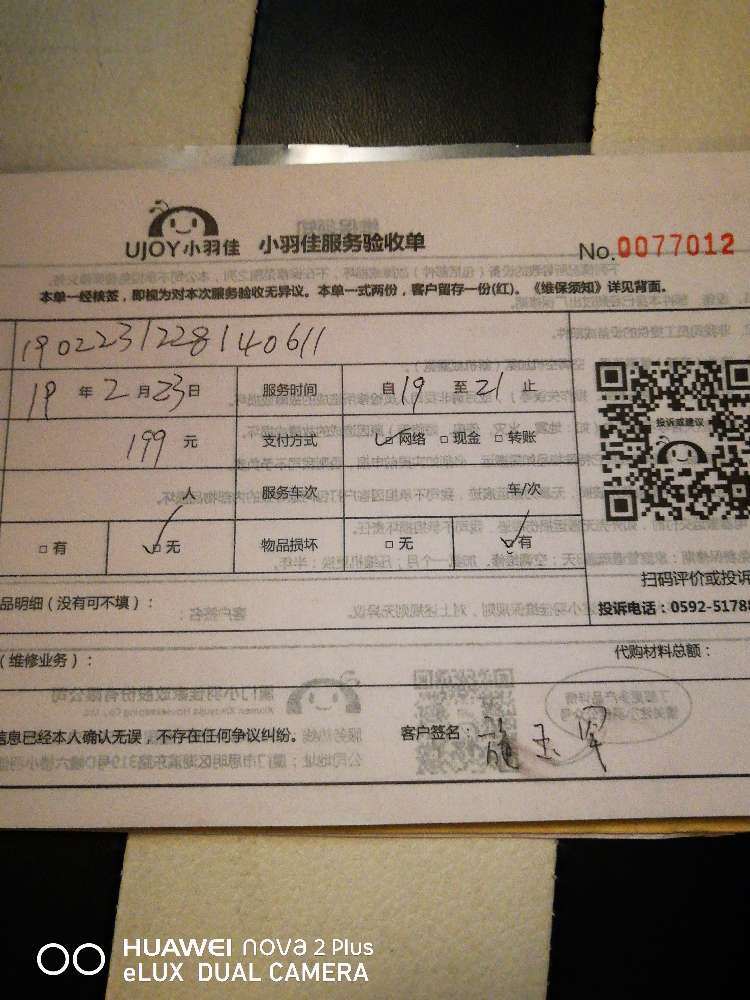 UJOY小羽佳 小羽佳服务验收单
No.0077012
本单一经核签，即视为对本次服务验收无异议。本单一式两份，客户留存一份(红)。《维保须知》详见背面。
1902231228140611
19年2月23日 服务时间 自19至21止
199元 支付方式 □网络 □现金 □转账
投诉或建议
人 服务车次 车/次
□有 □无 物品损坏 □无 □有
扫码评价或投诉
品明细（没有可不填）：
投诉电话：0592-51788
（维修业务）：
代购材料总额：
信息已经本人确认无误，不存在任何争议纠纷。
客户签名：
HUAWEI nova 2 Plus
eLUX DUAL CAMERA